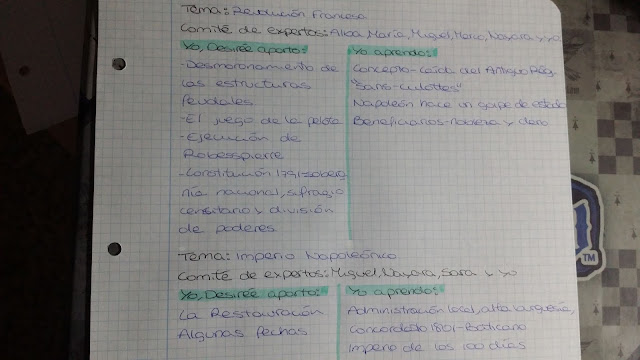 Tema: Revolución Francesa
Comité de expertos: Ainoa, María, Miguel, Marco, Nayara y yo
Yo, Desirée aporto:
-Desmoronamiento de
las estructuras
feudales
-El juego de la pelota
-Ejecución de
Robesspierre
-Constitución 1791=sobera
nía nacional, sufragio
censitario y división
de poderes.
Yo aprendo:
Concepto-Caída del Antiguo Rég.
"Sans-culottes"
Napoleón hace un golpe de estado
Beneficiarios-nobleza y clero
Tema: Imperio Napoleónico.
Comité de expertos: Miguel, Nayara, Sara y yo
Yo, Desirée aporto:
La Restauración
Algunas fechas
Yo aprendo:
Administración local, alta burguesía,
Concordato 1801-Vaticano
Imperio de los 100 días
TM